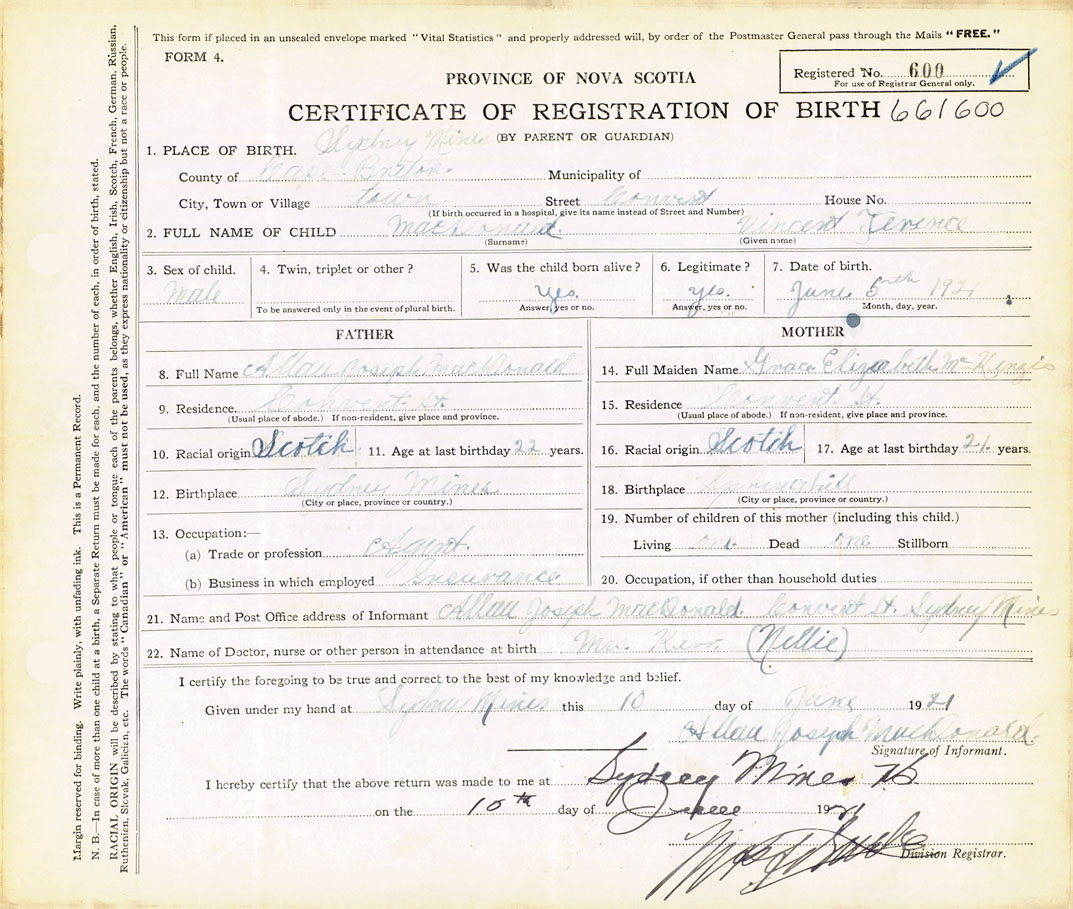 This form if placed in an unsealed envelope marked "Vital Statistics" and properly addressed will, by order of the Postmaster General pass through the Mails "FREE."
FORM 4.
Registered No. 600
For use of Registrar General only.
PROVINCE OF NOVA SCOTIA
CERTIFICATE OF REGISTRATION OF BIRTH 661600
(BY PARENT OR GUARDIAN)
1. PLACE OF BIRTH. Sydney Mines
County of Cape Breton. Municipality of
City, Town or Village town Street Convent House No.
(If birth occurred in a hospital, give its name instead of Street and Number)
2. FULL NAME OF CHILD MacDonald. Vincent Terence
(Surname) (Given name)
3. Sex of child. Male
4. Twin, triplet or other?
To be answered only in the event of plural birth.
5. Was the child born alive? Yes.
Answer, yes or no.
6. Legitimate? yes.
Answer, yes or no.
7. Date of birth. June 5th 1921
Month, day, year.
FATHER
8. Full Name Allan Joseph MacDonald
9. Residence. Convent St.
(Usual place of abode.) If non-resident, give place and province.
10. Racial origin Scotch 11. Age at last birthday 22 years.
12. Birthplace Sydney Mines
(City or place, province or country.)
13. Occupation:—
(a) Trade or profession Agent.
(b) Business in which employed Insurance
MOTHER
14. Full Maiden Name Grace Elizabeth McKenzie
15. Residence Convent St.
(Usual place of abode.) If non-resident, give place and province.
16. Racial origin Scotch 17. Age at last birthday 21. years.
18. Birthplace Springhill
(City or place, province or country.)
19. Number of children of this mother (including this child.)
Living one. Dead one Stillborn
20. Occupation, if other than household duties
21. Name and Post Office address of Informant Allan Joseph MacDonald. Convent St. Sydney Mines
22. Name of Doctor, nurse or other person in attendance at birth Mrs. (Nellie)
I certify the foregoing to be true and correct to the best of my knowledge and belief.
Given under my hand at Sydney Mines this 10 day of June 1921
Allan Joseph MacDonald.
Signature of Informant.
I hereby certify that the above return was made to me at Sydney Mines
on the 10th day of June 1921
Division Registrar.
Margin reserved for binding. Write plainly, with unfading ink. This is a Permanent Record.
N. B.—In case of more than one child at a birth, a Separate Return must be made for each, and the number of each, in order of birth, stated.
RACIAL ORIGIN will be described by stating to what people or tongue each of the parents belongs, whether English, Irish, Scotch, French, German, Russian,
Ruthenian, Slovak, Galician, etc. The words "Canadian" or "American" must not be used, as they express nationality or citizenship but not a race or people.